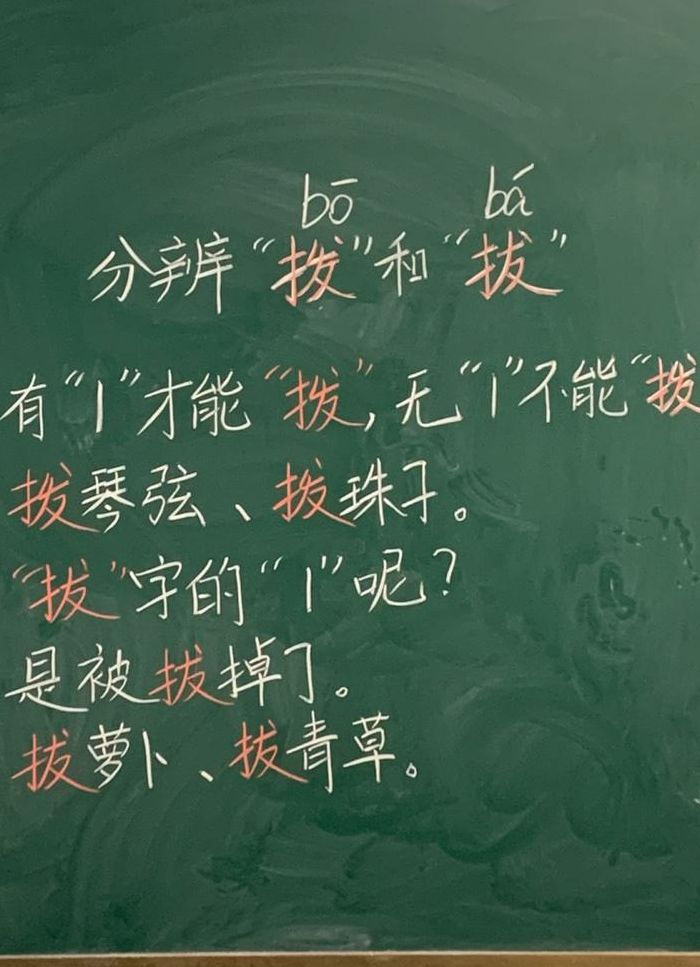 bō bá
分辨“拨”和“拔”
有“丨”才能“拨”,无“丨”不能“拨
拨琴弦、拨珠子。
“拔”字的“丨”呢?
是被拔掉了。
拔萝卜、拔青草。